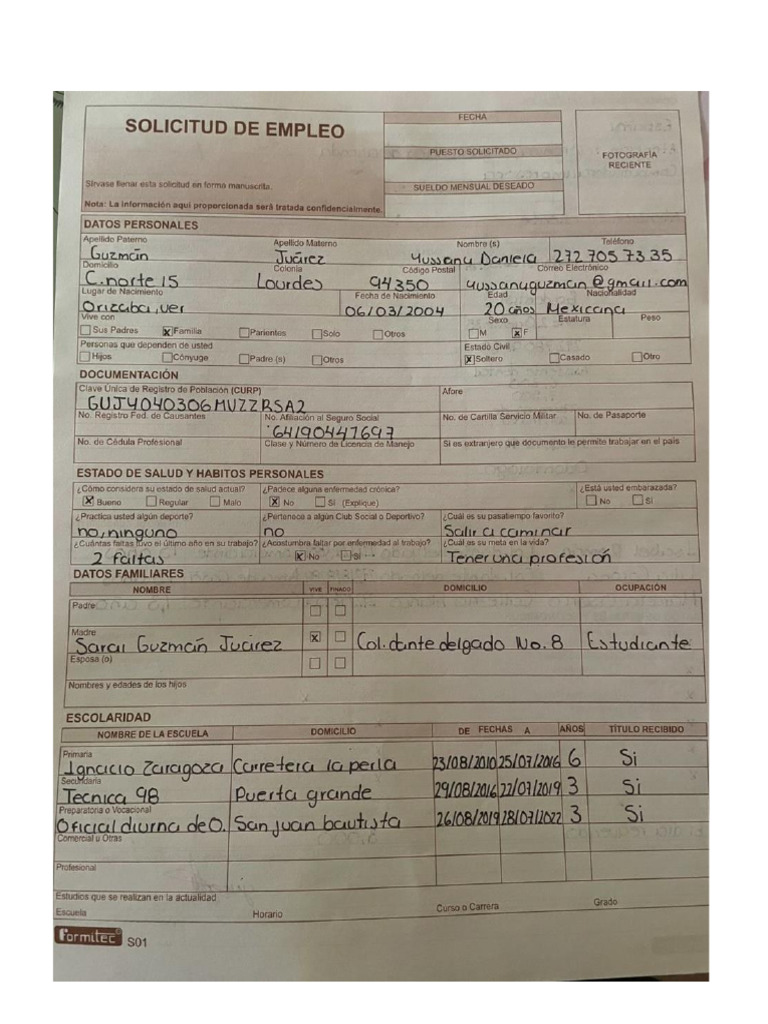 SOLICITUD DE EMPLEO
FECHA
PUESTO SOLICITADO
FOTOGRAFÍA
RECIENTE
Sírvase llenar esta solicitud en forma manuscrita.
SUELDO MENSUAL DESEADO
Nota: La información aquí proporcionada será tratada confidencialmente.
DATOS PERSONALES
Apellido Paterno Apellido Materno Nombre (s) Teléfono
Guzmán Juárez Yussany Daniela 272 705 73 35
Domicilio Colonia Código Postal Correo Electrónico
C. norte 15 Lourdes 94350 yussanyguzman@gmail.com
Lugar de Nacimiento Fecha de Nacimiento Edad Nacionalidad
Orizaba, ver 06/03/2004 20 años Mexicana
Vive con Sexo Estatura Peso
Sus Padres x Familia Parientes Solo Otros M x F
Personas que dependen de usted Estado Civil
Hijos Cónyuge Padre (s) Otros x Soltero Casado Otro
DOCUMENTACIÓN
Clave Única de Registro de Población (CURP) Afore
GUJY040306MVZZRSA2
No. Registro Fed. de Causantes No. Afiliación al Seguro Social No. de Cartilla Servicio Militar No. de Pasaporte
64190447697
No. de Cédula Profesional Clase y Número de Licencia de Manejo Si es extranjero que documento le permite trabajar en el país
ESTADO DE SALUD Y HABITOS PERSONALES
¿Cómo considera su estado de salud actual? ¿Padece alguna enfermedad crónica? ¿Está usted embarazada?
x Bueno Regular Malo x No Sí (Explique) No Si
¿Practica usted algún deporte? ¿Pertenece a algún Club Social o Deportivo? ¿Cuál es su pasatiempo favorito?
no, ninguno no Salir a caminar
¿Cuántas faltas tuvo el último año en su trabajo? ¿Acostumbra faltar por enfermedad al trabajo? ¿Cuál es su meta en la vida?
2 faltas x No Si Tener una profesión
DATOS FAMILIARES
NOMBRE VIVE FINADO DOMICILIO OCUPACIÓN
Padre
Madre
Sarai Guzmán Juárez x Col. dante delgado No. 8 Estudiante
Esposa (o)
Nombres y edades de los hijos
ESCOLARIDAD
NOMBRE DE LA ESCUELA DOMICILIO DE FECHAS A AÑOS TÍTULO RECIBIDO
Primaria
Ignacio Zaragoza Carretera la perla 23/08/2010 25/07/2016 6 Si
Secundaria
Tecnica 98 Puerta grande 29/08/2016 22/07/2019 3 Si
Preparatoria o Vocacional
Oficial diurna de O. San juan bautista 26/08/2019 28/07/2022 3 Si
Comercial u Otras
Profesional
Estudios que se realizan en la actualidad
Escuela Horario Curso o Carrera Grado
formitec S01